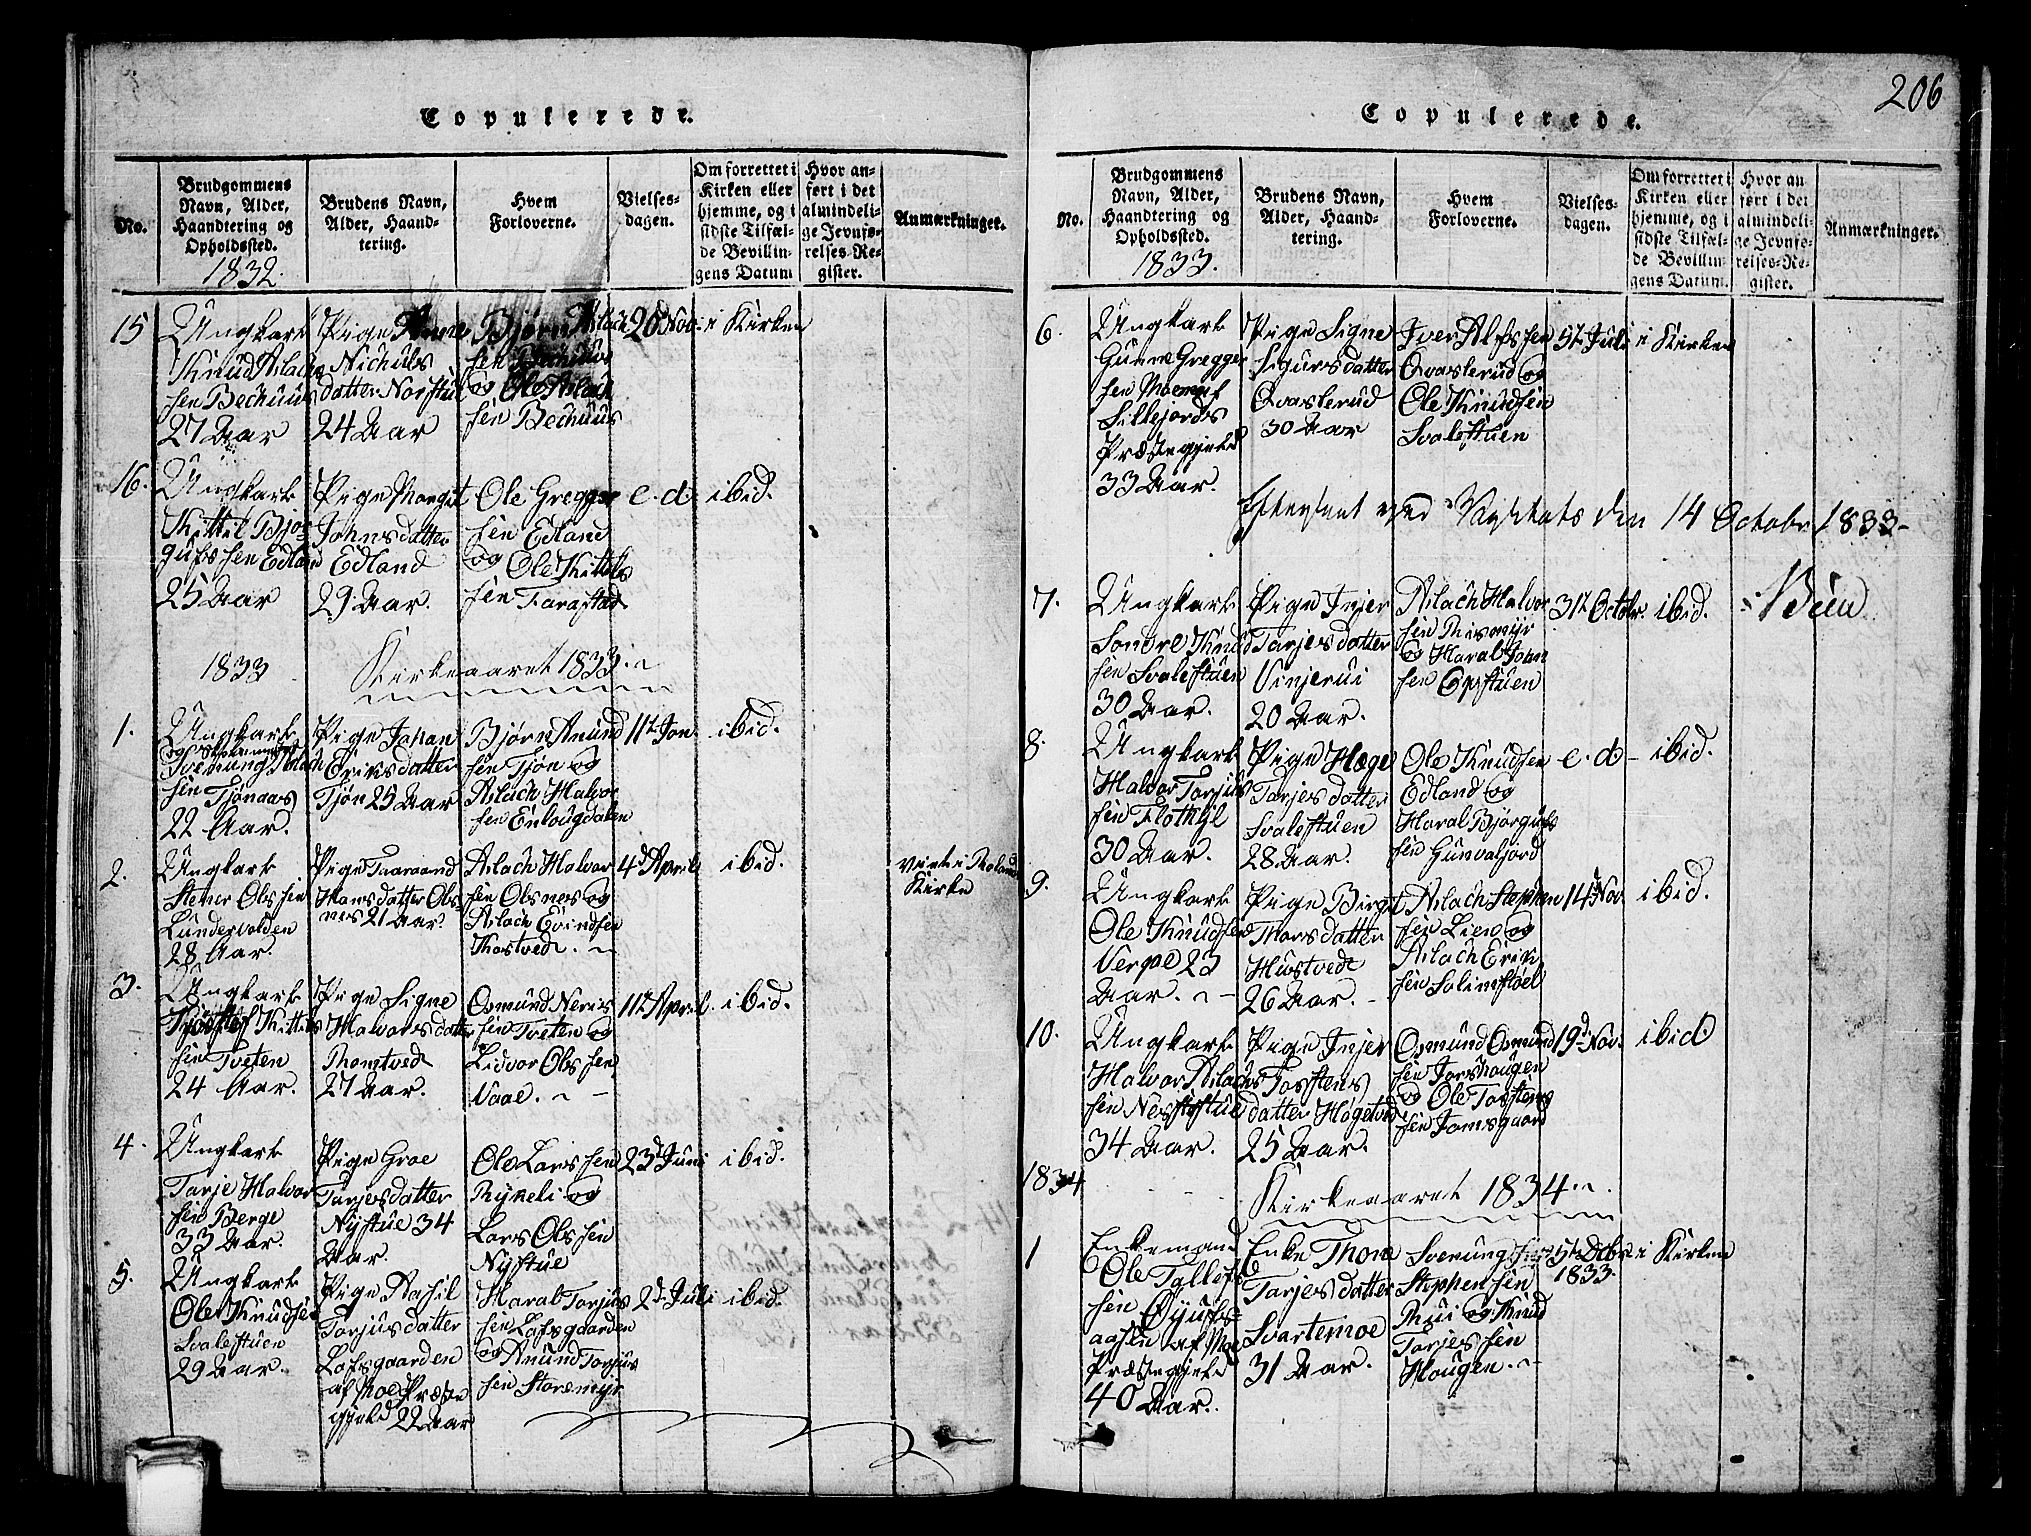 Copulerede.
No.
Brudgommens
Navn, Alder,
Haandtering og
Opholdssted.
1832.
Brudens Navn,
Alder, Haand-
tering.
Hvem
Forloverne.
Vielses-
dagen.
Om forrettet i
Kirken eller
hjemme, og i
sidste Tilfæl-
de Bevillin-
gens Datum
Hvor an-
ført i det
almindeli-
ge Jevnfø-
relses-Re-
gister.
Anmærkninger.
15
Ungkarl
Knud Aslachs
sen Bechuus
27 Aar
Pige Anne
Nichuls
datter Norstui
24 Aar
Bjørn Aslach
sen Bechuus
og Ole Aslach
sen Bechuus
20 Nov.
i Kirken
16.
Ungkarl
Kittil Bjor-
gufssen Edland
25 Aar
Pige Margit
Johnsdatter
Edland
29 Aar.
Ole Gregger
sen Edland
og Ole Kittils
sen Tarastad
e. d.
ibid.
1833
Kirkeaaret 1833.
1.
Ungkarl
Svenung Aslach
sen Tjønaas
22 Aar.
Pige Johan
Eriksdatter
Tjøn 25 Aar
Bjørn Anund
sen Tjøn og
Aslach Halvor
sen Enlougdalen
11t Jan.
ibid.
2.
Ungkarl
Stener Olssen
Lundevolden
28 Aar.
Pige Taraand
Hansdatter Ols-
nes 21 Aar.
Aslach Halvor
sen Olsnes og
Aslach Evindsen
Thostvedt.
4d April
ibid.
viet i Moland
Kirke
3.
Ungkarl
Tjøstof Kittils
sen Tveten
24 Aar.
Pige Signe
Halvorsdatter
Thomtvedt
27 Aar.
Osmund Neris
sen Tveten og
Lidvor Olssen
Vaae.
11t April.
ibid.
4.
Ungkarl
Tarje Halvor
sen Berge
33 Aar.
Pige Groe
Tarjesdatter
Nystue 34
Aar.
Ole Larssen
Ryneli og
Lars Olssen
Nystue
23d Juni
ibid.
5.
Ungkarl
Ole Knudsen
Svalestuen
29 Aar.
Pige Aasil
Torjusdatter
Lofsgaarden
af Moe Præste
gjeld 22 Aar
Haral Torjus
sen Lofsgaarden
og Anund Torjus
sen Storemyr
2d Juli
ibid.
206
Copulerede.
No.
Brudgommens
Navn, Alder,
Haandtering og
Opholdssted.
1833.
Brudens Navn,
Alder, Haand-
tering.
Hvem
Forloverne.
Vielses-
dagen.
Om forrettet i
Kirken eller
hjemme, og i
sidste Tilfæl-
de Bevillin-
gens Datum.
Hvor an
ført i det
almindeli-
ge Jevnfø-
relses-Re-
gister.
Anmærkninger.
6.
Ungkarl
Gunne Gregger
sen Moen af
Sillejords
Præstegjeld
33 Aar.
Pige Signe
Sigursdatter
Qvaslerud
30 Aar
Iver Alfssen
Qvaslerud og
Ole Knudsen
Svalestuen
5t Juli
i Kirken
Efterseet ved Visitats den 14 Octobr 1833-
7.
Ungkarl
Sondre Knud
sen Svalestuen
30 Aar.
Pige Injer
Tarjesdatter
Vinjerui
20 Aar.
Aslach Halvor
sen Rismyr
og Haral John
sen Opstuen
31t Octobr.
ibid.
8.
Ungkarl
Halvor Torjus
sen Flothyl
30 Aar.
Pige Hæge
Tarjesdatter
Svalestuen
28 Aar.
Ole Knudsen
Edland og
Haral Bjørgufs
sen Gunvaljord
e. d-
ibid.
9.
Ungkarl
Ole Knudsen
Vergae 23
Aar.
Pige Birgit
Thorsdatter
Hustvedt
26 Aar.
Aslach Stephen
sen Lien og
Aslach Erik
sen Solimstøel
14d Nov.
ibid.
10.
Ungkarl
Halvor Aslachs
sen Nesstystue
34 Aar.
Pige Injer
Torstens
datter Høgetvedt
25 Aar.
Osmund Osmund
sen Jorshougen
og Ole Torstens
sen Jamsgaard
19d Nov.
ibid
1834
Kirkeaaret 1834.
1
Enkemand
Ole Tollefs
sen Øyufs-
aasen af Moe
Præstegjeld
40 Aar.
Enke Thone
Tarjesdatter
Svartemoe
31 Aar.
Svenung
Stephensen
Rui og Knud
Tarjessen
Hougen.
5t Dcbr.
1833.
i Kirken